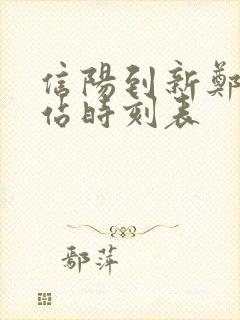 信陽到新鄭
佔時刻表
鄢萍